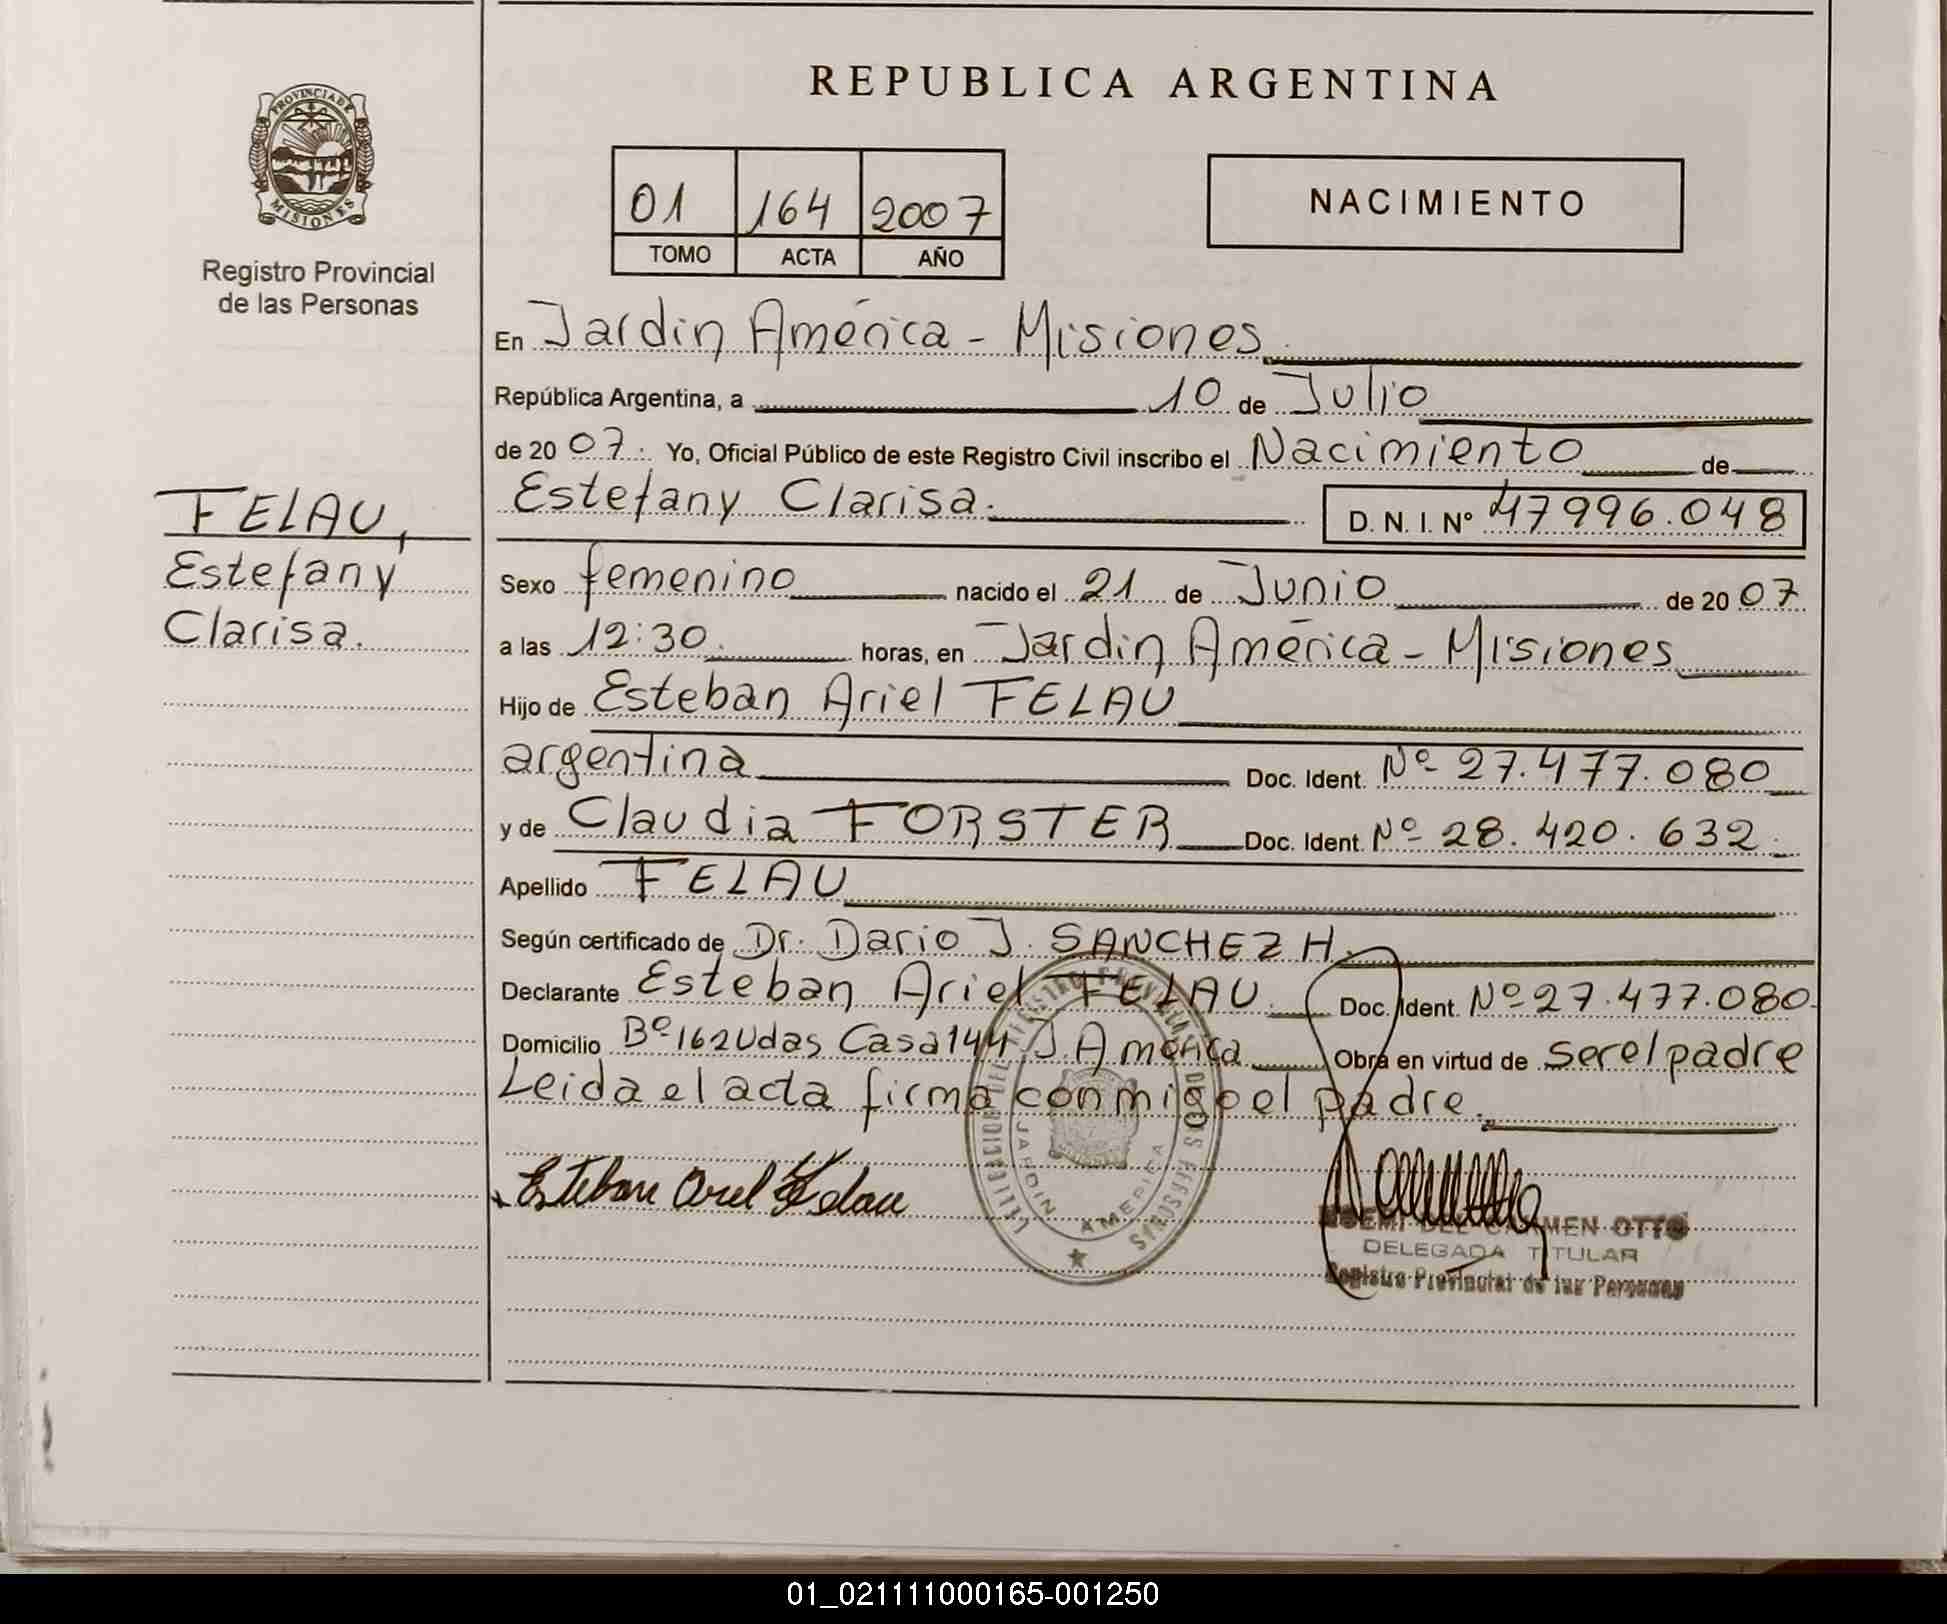 REPUBLICA ARGENTINA
PROVINCIA DE
MISIONES
Registro Provincial
de las Personas
01 164 2007
TOMO ACTA AÑO
NACIMIENTO
En Jardin América - Misiones.
República Argentina, a 10 de Julio
de 2007. Yo, Oficial Público de este Registro Civil inscribo el Nacimiento de
Estefany Clarisa. D. N. I. Nº 47996.048
FELAU,
Estefany
Clarisa.
Sexo femenino nacido el 21 de Junio de 2007
a las 12:30. horas, en Jardin América - Misiones
Hijo de Esteban Ariel FELAU
argentina Doc. Ident. Nº 27.477.080
y de Claudia FORSTER Doc. Ident. Nº 28.420.632.
Apellido FELAU
Según certificado de Dr. Dario J. SANCHEZ H.
Declarante Esteban Ariel FELAU. Doc. Ident. Nº 27.477.080.
Domicilio Bº 162 Udas Casa 144, J. América Obra en virtud de ser el padre
Leida el acta firma conmigo el padre.
Esteban Ariel Felau
JARDIN AMERICA
NOEMI DEL CARMEN OTTO
DELEGADA TITULAR
Registro Provincial de las Personas
01_021111000165-001250